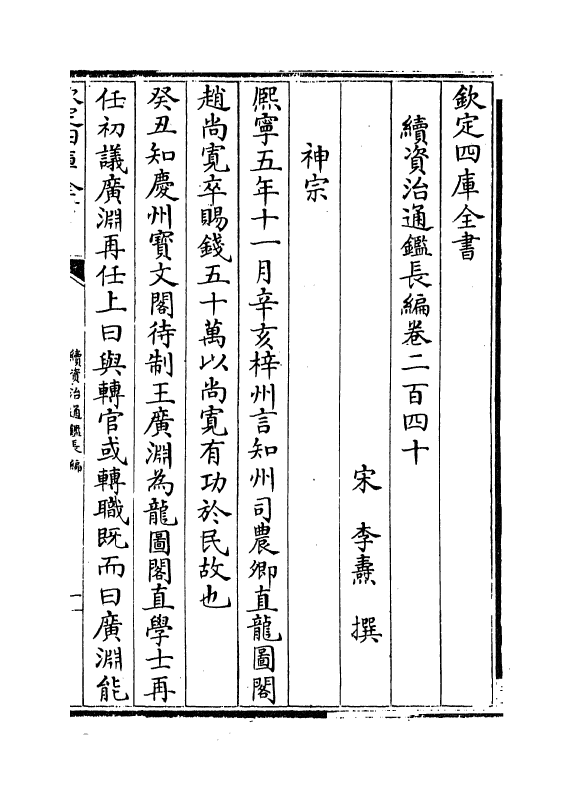 欽定四庫全書
續資治通鑑長編卷二百四十
宋 李燾 撰
神宗
熙寧五年十一月辛亥梓州言知州司農卿直龍圖閣
趙尚寛卒賜錢五十萬以尚寛有功於民故也
癸丑知慶州寶文閣待制王廣淵為龍圖閣直學士再
任初議廣淵再任上曰與轉官或轉職既而曰廣淵能
欽定四庫全書
續資治通鑑長編
一